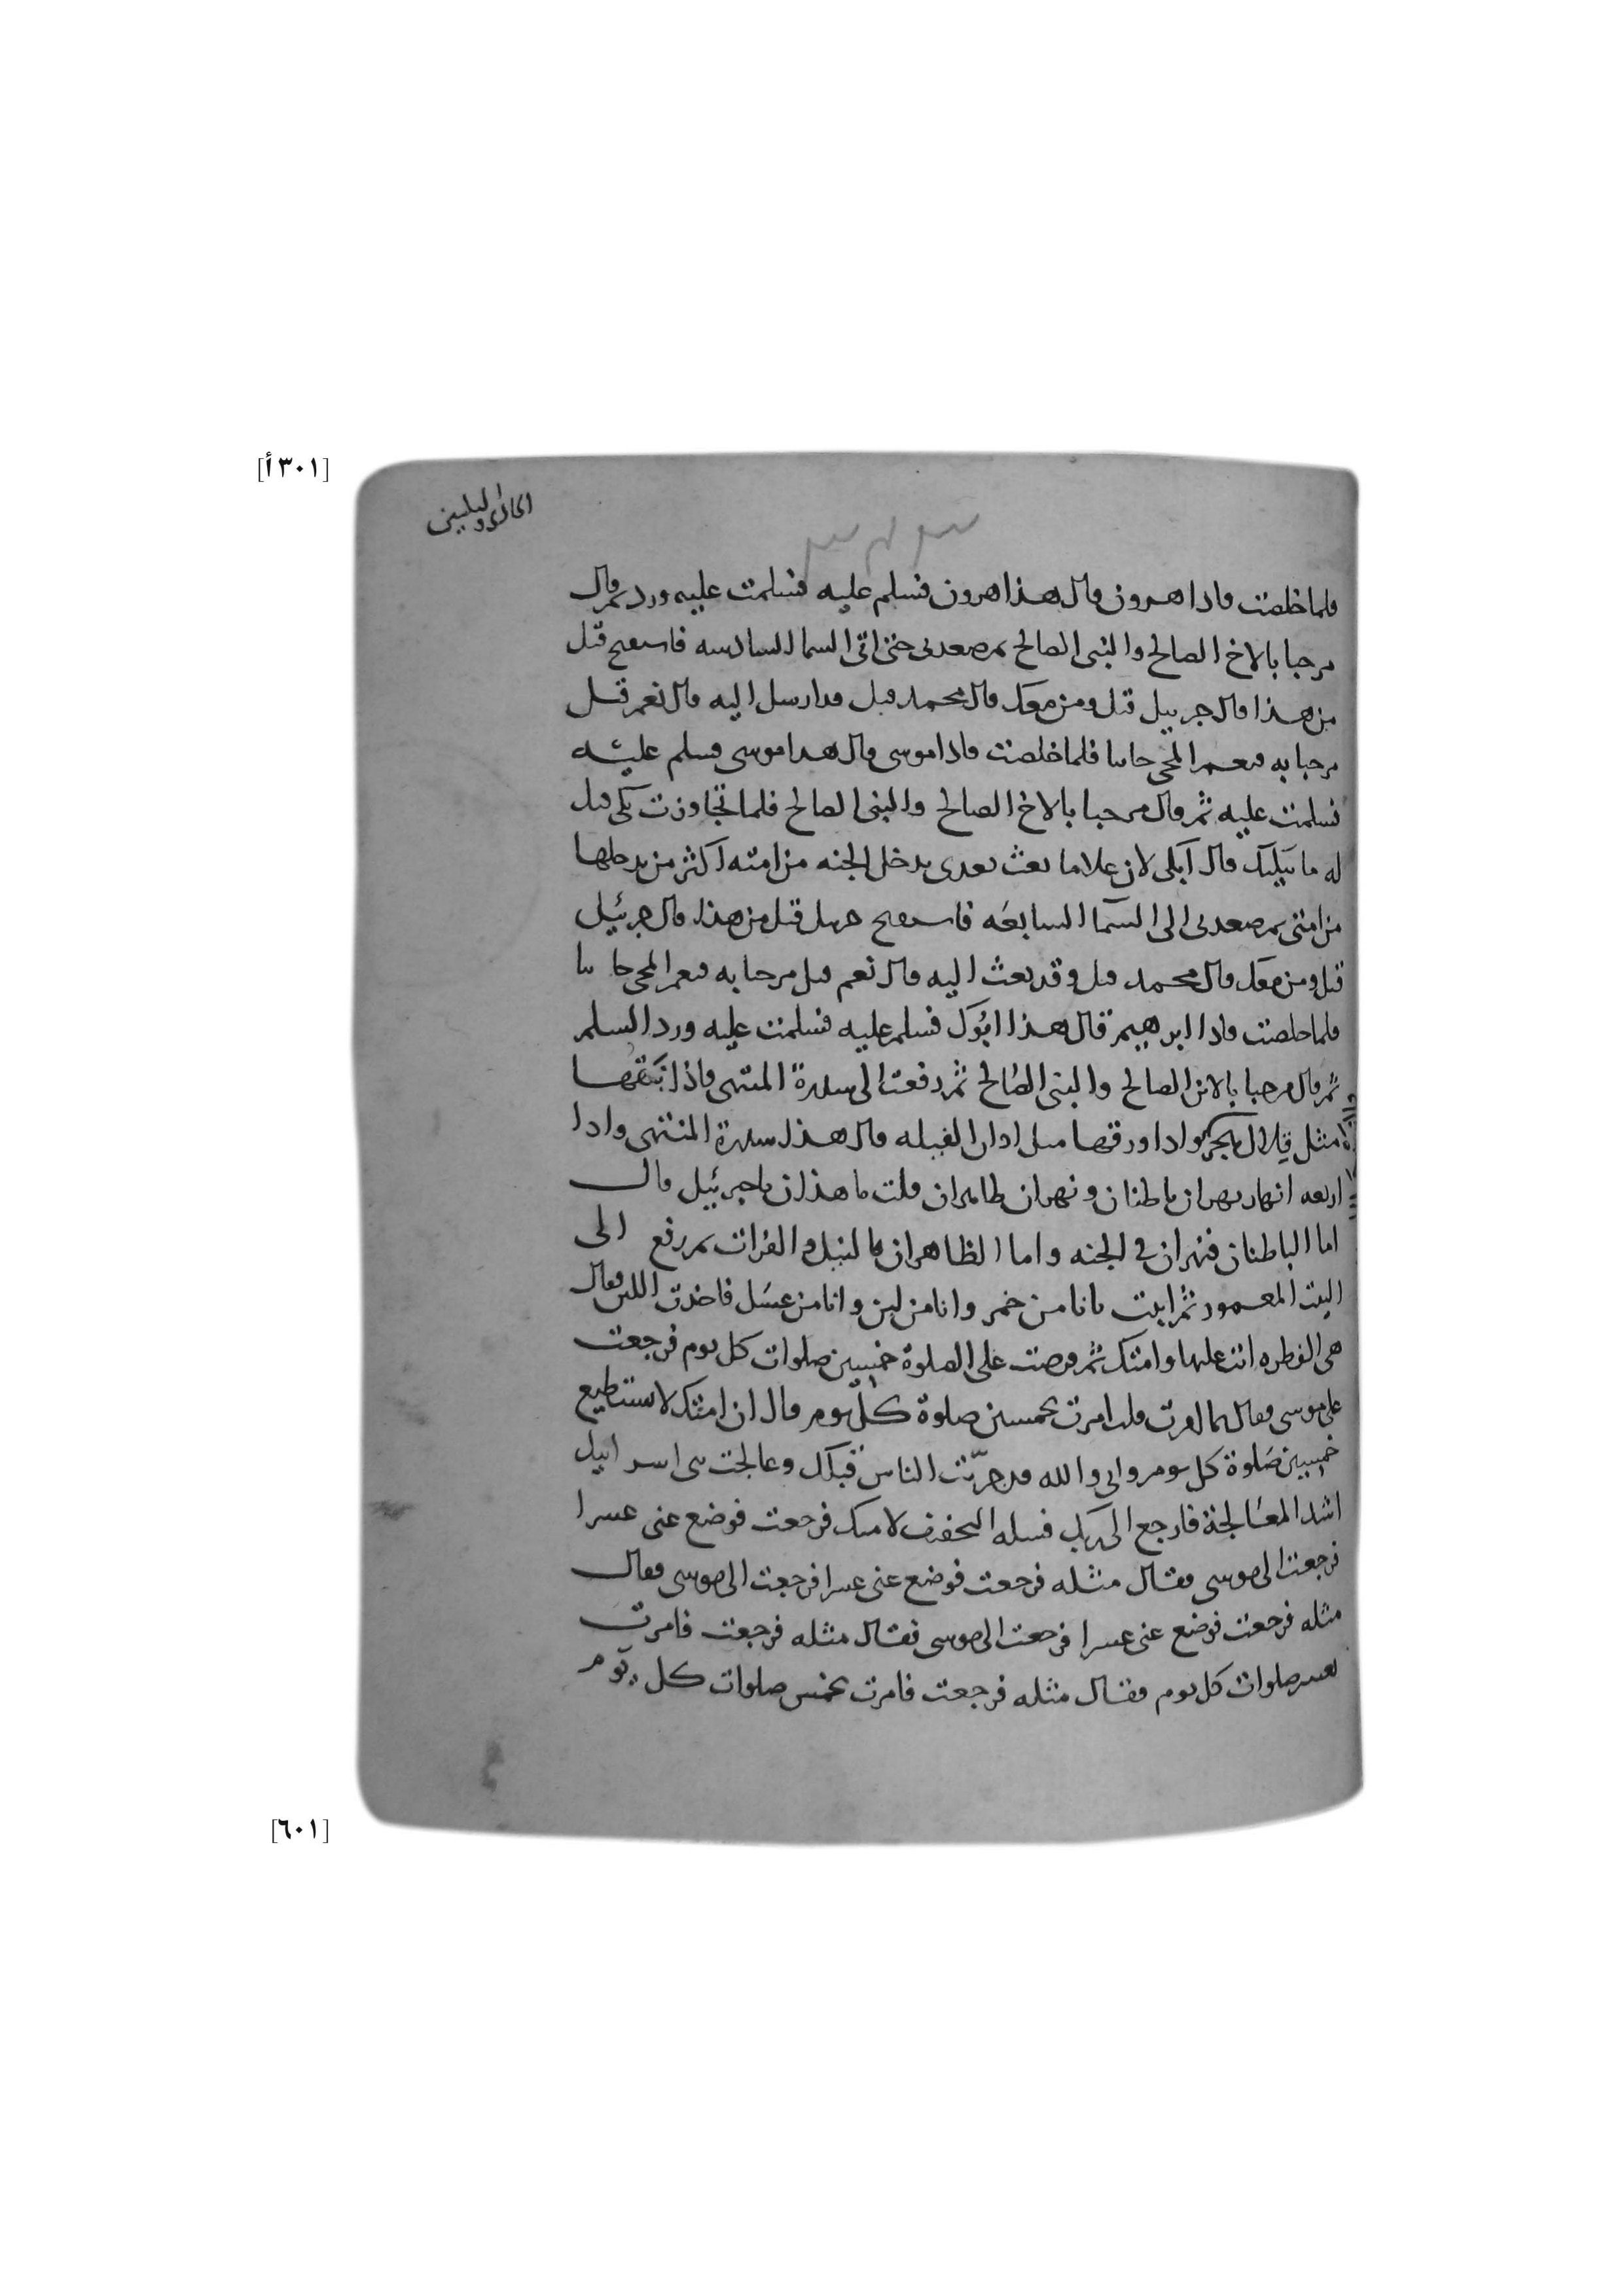 [٣٠١أ]
الحادي والثلثين
فلما خلصت فاذا هرون قال هذا هرون فسلم عليه فسلمت عليه ورد ثم قال
مرحبا بالاخ الصالح والنبي الصالح ثم صعد بي حتى اتى السما السادسه فاستفتح قيل
من هذا قال جبريل قيل ومن معك قال محمد قيل وقد ارسل اليه قال نعم قيل
مرحبا به فنعم المجي جاء فلما خلصت فاذا موسى قال هذا موسى فسلم عليه
فسلمت عليه ثم قال مرحبا بالاخ الصالح والنبي الصالح فلما تجاوزت بكى قيل
له ما يبكيك قال ابكي لان غلاما بعث بعدي يدخل الجنه من امته اكثر من يدخلها
من امتي ثم صعد بي الى السما السابعه فاستفتح جبريل قيل من هذا قال جبرئيل
قيل ومن معك قال محمد قيل وقد بعث اليه قال نعم قيل مرحبا به فنعم المجي جاء
فلما خلصت فاذا ابرهيم قال هذا ابوك فسلم عليه فسلمت عليه ورد السلم
ثم قال مرحبا بالابن الصالح والنبي الصالح ثم رفعت الى سدرة المنتهى فاذا نبقها
مثل قلال هجر واذا ورقها مثل اذان الفيله قال هذا سدرة المنتهى واذا
اربعه انهار نهران باطنان ونهران ظاهران قلت ما هذان يا جبرئيل قال
اما الباطنان فنهران في الجنه واما الظاهران فالنيل والفرات ثم رفع الى
البيت المعمور ثم اتيت بانا من خمر وانا من لبن وانا من عسل فاخذت اللبن فقال
هي الفطره انت عليها وامتك ثم فرضت على الصلوة خمسين صلوات كل يوم فرجعت
على موسى فقال بما امرت قلت امرت بخمسين صلوة كل يوم قال ان امتك لا تستطيع
خمسين صلوة كل يوم واني والله قد جربت الناس قبلك وعالجت بني اسرايل
اشد المعالجة فارجع الى ربك فسله التخفيف لامتك فرجعت فوضع عني عشرا
فرجعت الى موسى فقال مثله فرجعت فوضع عني عشرا فرجعت الى موسى فقال
مثله فرجعت فوضع عني عشرا فرجعت الى موسى فقال مثله فرجعت فامرت
بعشر صلوات كل يوم فقال مثله فرجعت فامرت بخمس صلوات كل يوم
[٦٠١]